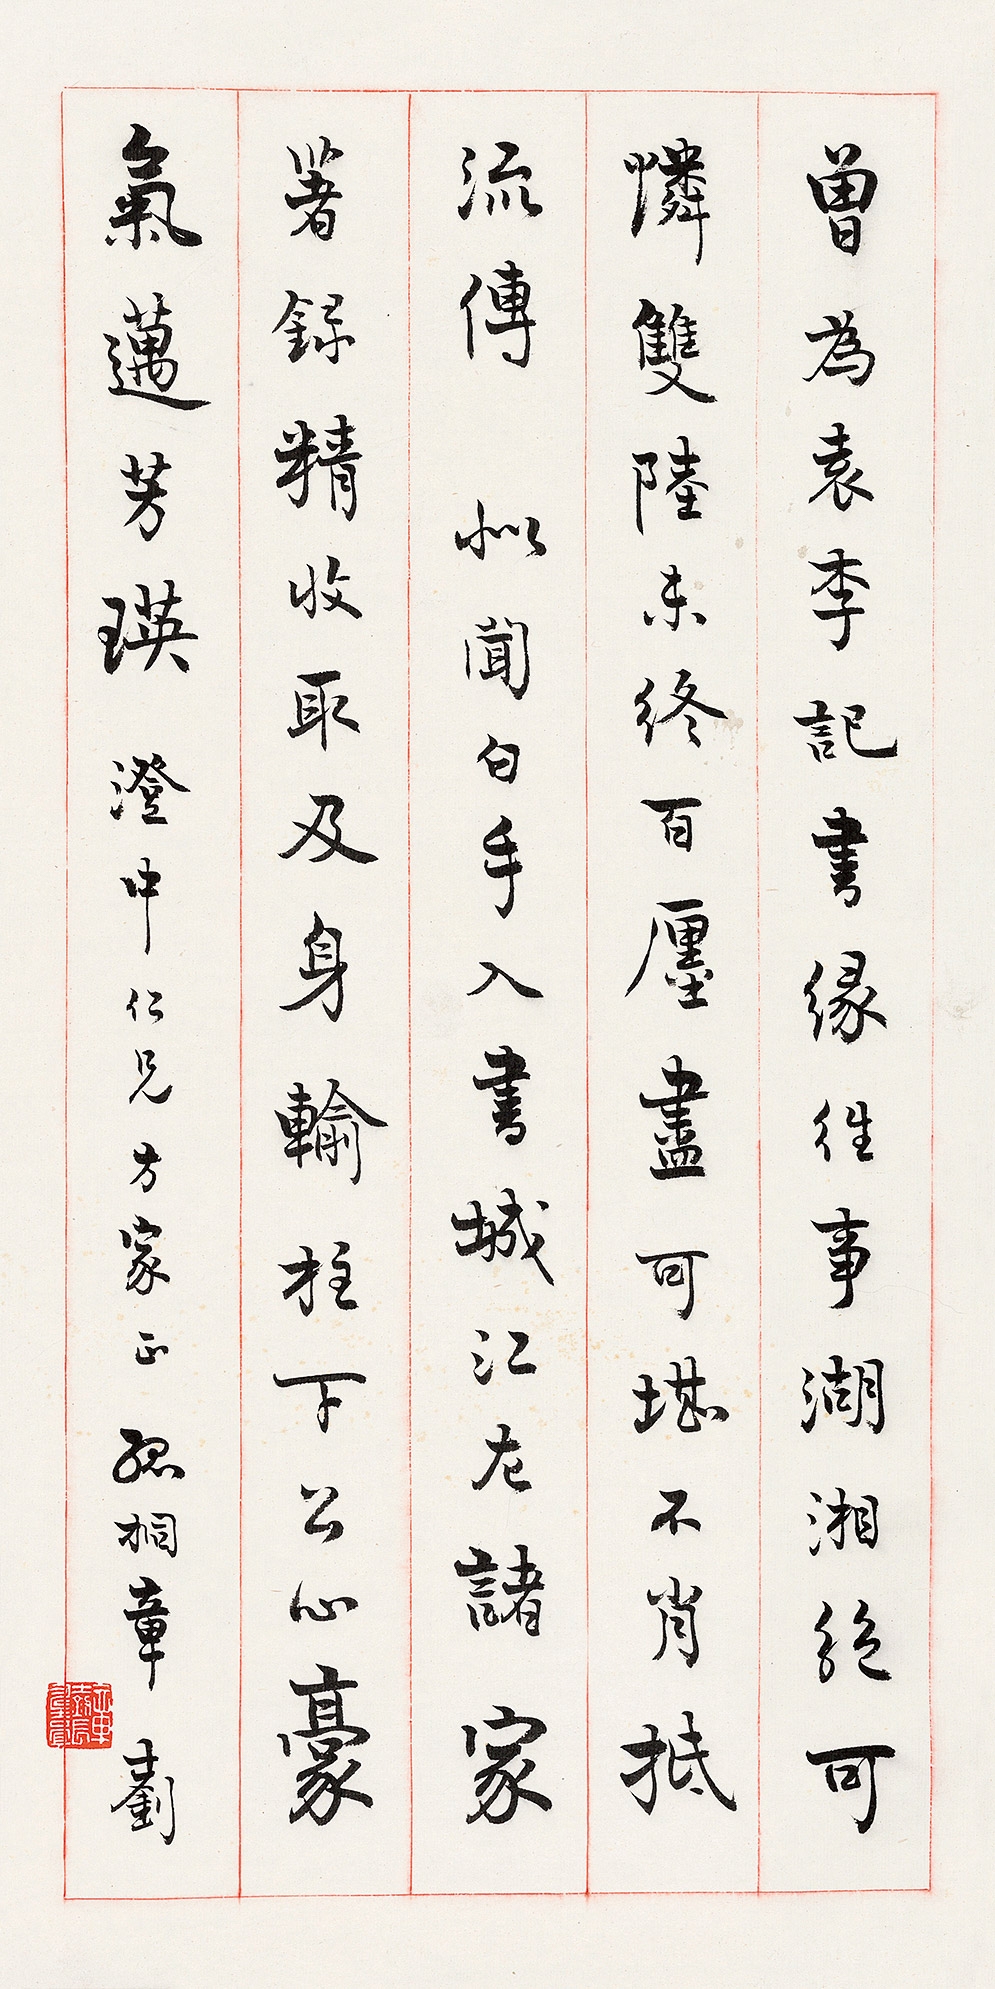 曾為袁李記書緣往事湖湘絕可
憐雙陸未終百廛盡可堪不肖抵
流傳 似聞白手入書城江左諸家
著錄精收取及身輸柱下公心豪
氣邁芳瑛 澄中仁兄方家正 孤桐章